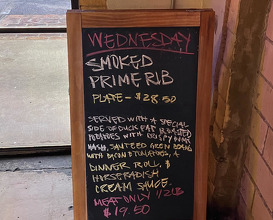 WEDNESDAY
SMOKED
PRIME RIB
PLATE - $28.50
SERVED WITH A SPECIAL
SIDE OF DUCK FAT ROASTED
POTATOES WITH CRISPY HAM
HASH, SAUTEED GREEN BEANS
WITH BACON & TOMATOES, A
DINNER ROLL, &
HORSERADISH
CREAM SAUCE.
MEAT ONLY 1/2 LB
$19.50